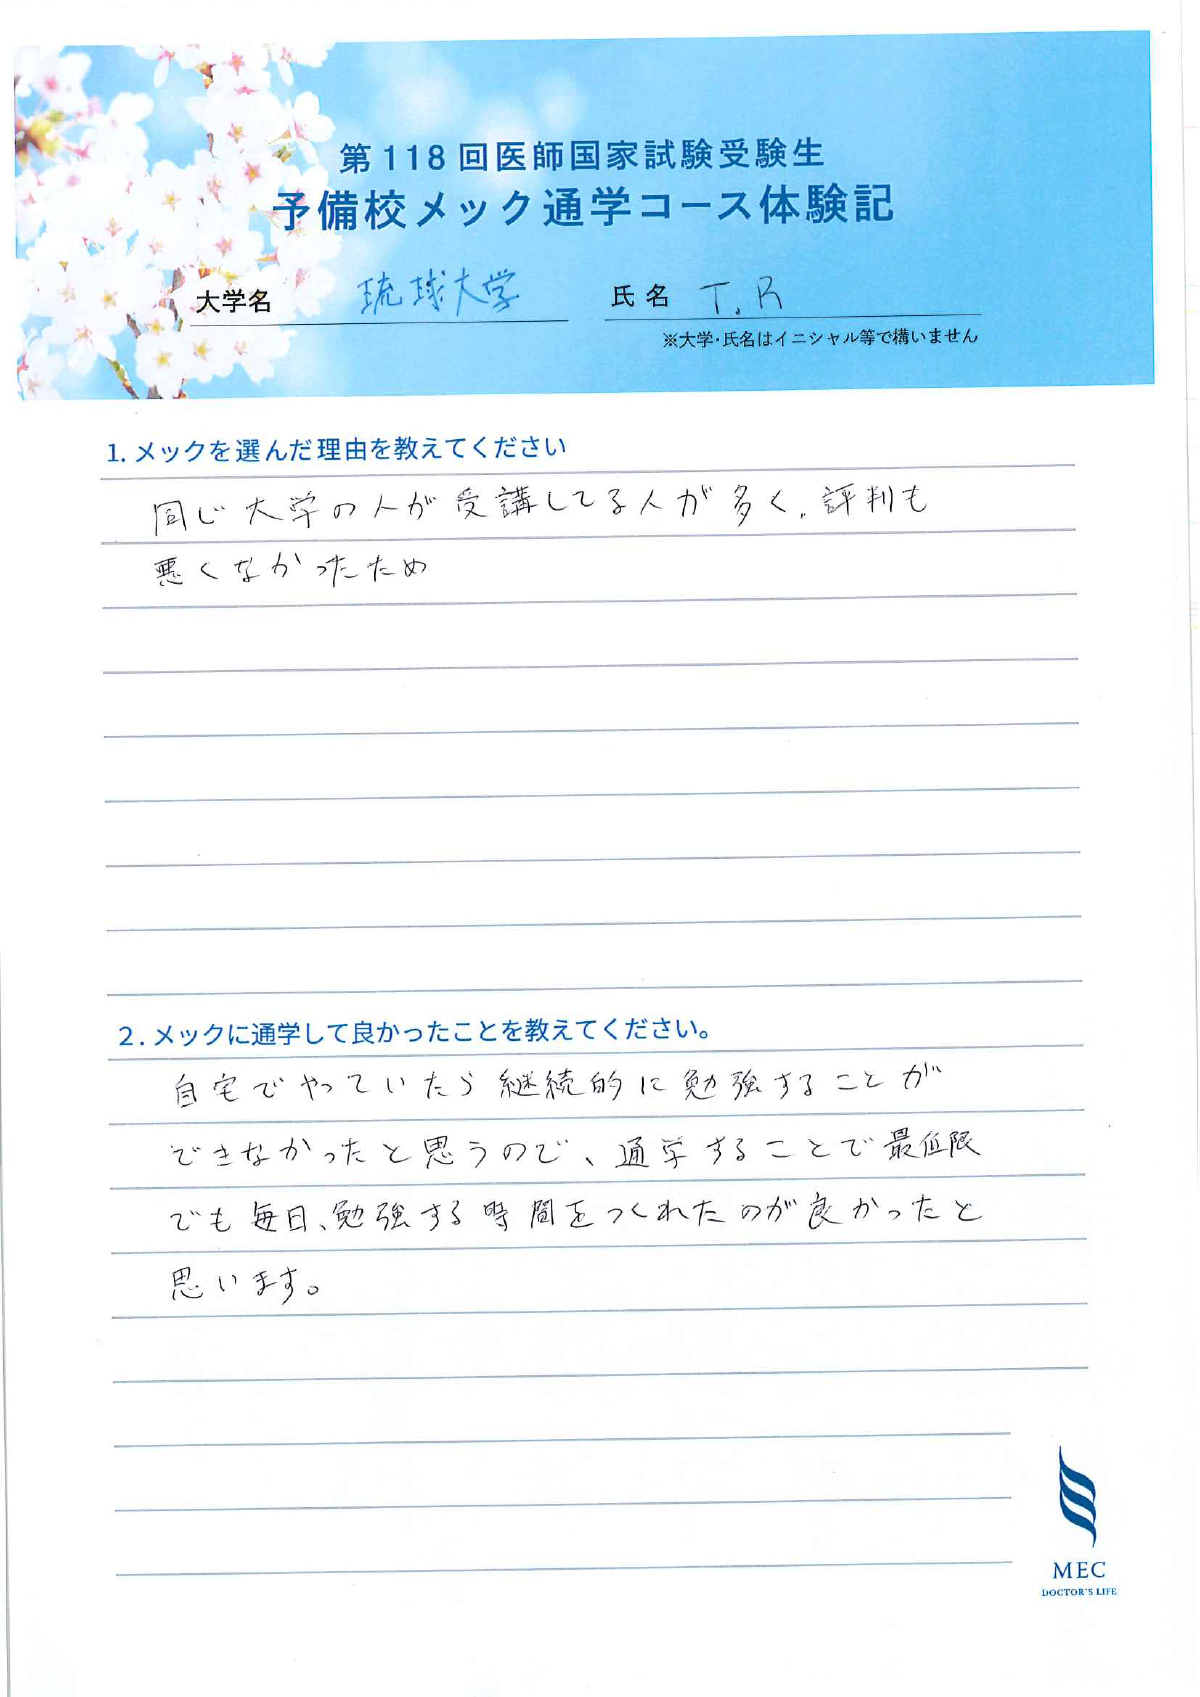 第118回医師国家試験受験生
予備校メック通学コース体験記
大学名 琉球大学 氏名 T.R
※大学・氏名はイニシャル等で構いません
1. メックを選んだ理由を教えてください
同じ大学の人が受講してる人が多く、評判も
悪くなかったため
2. メックに通学して良かったことを教えてください。
自宅でやっていたら継続的に勉強することが
できなかったと思うので、通学することで最低限
でも毎日、勉強する時間をつくれたのが良かったと
思います。
MEC
DOCTOR'S LIFE